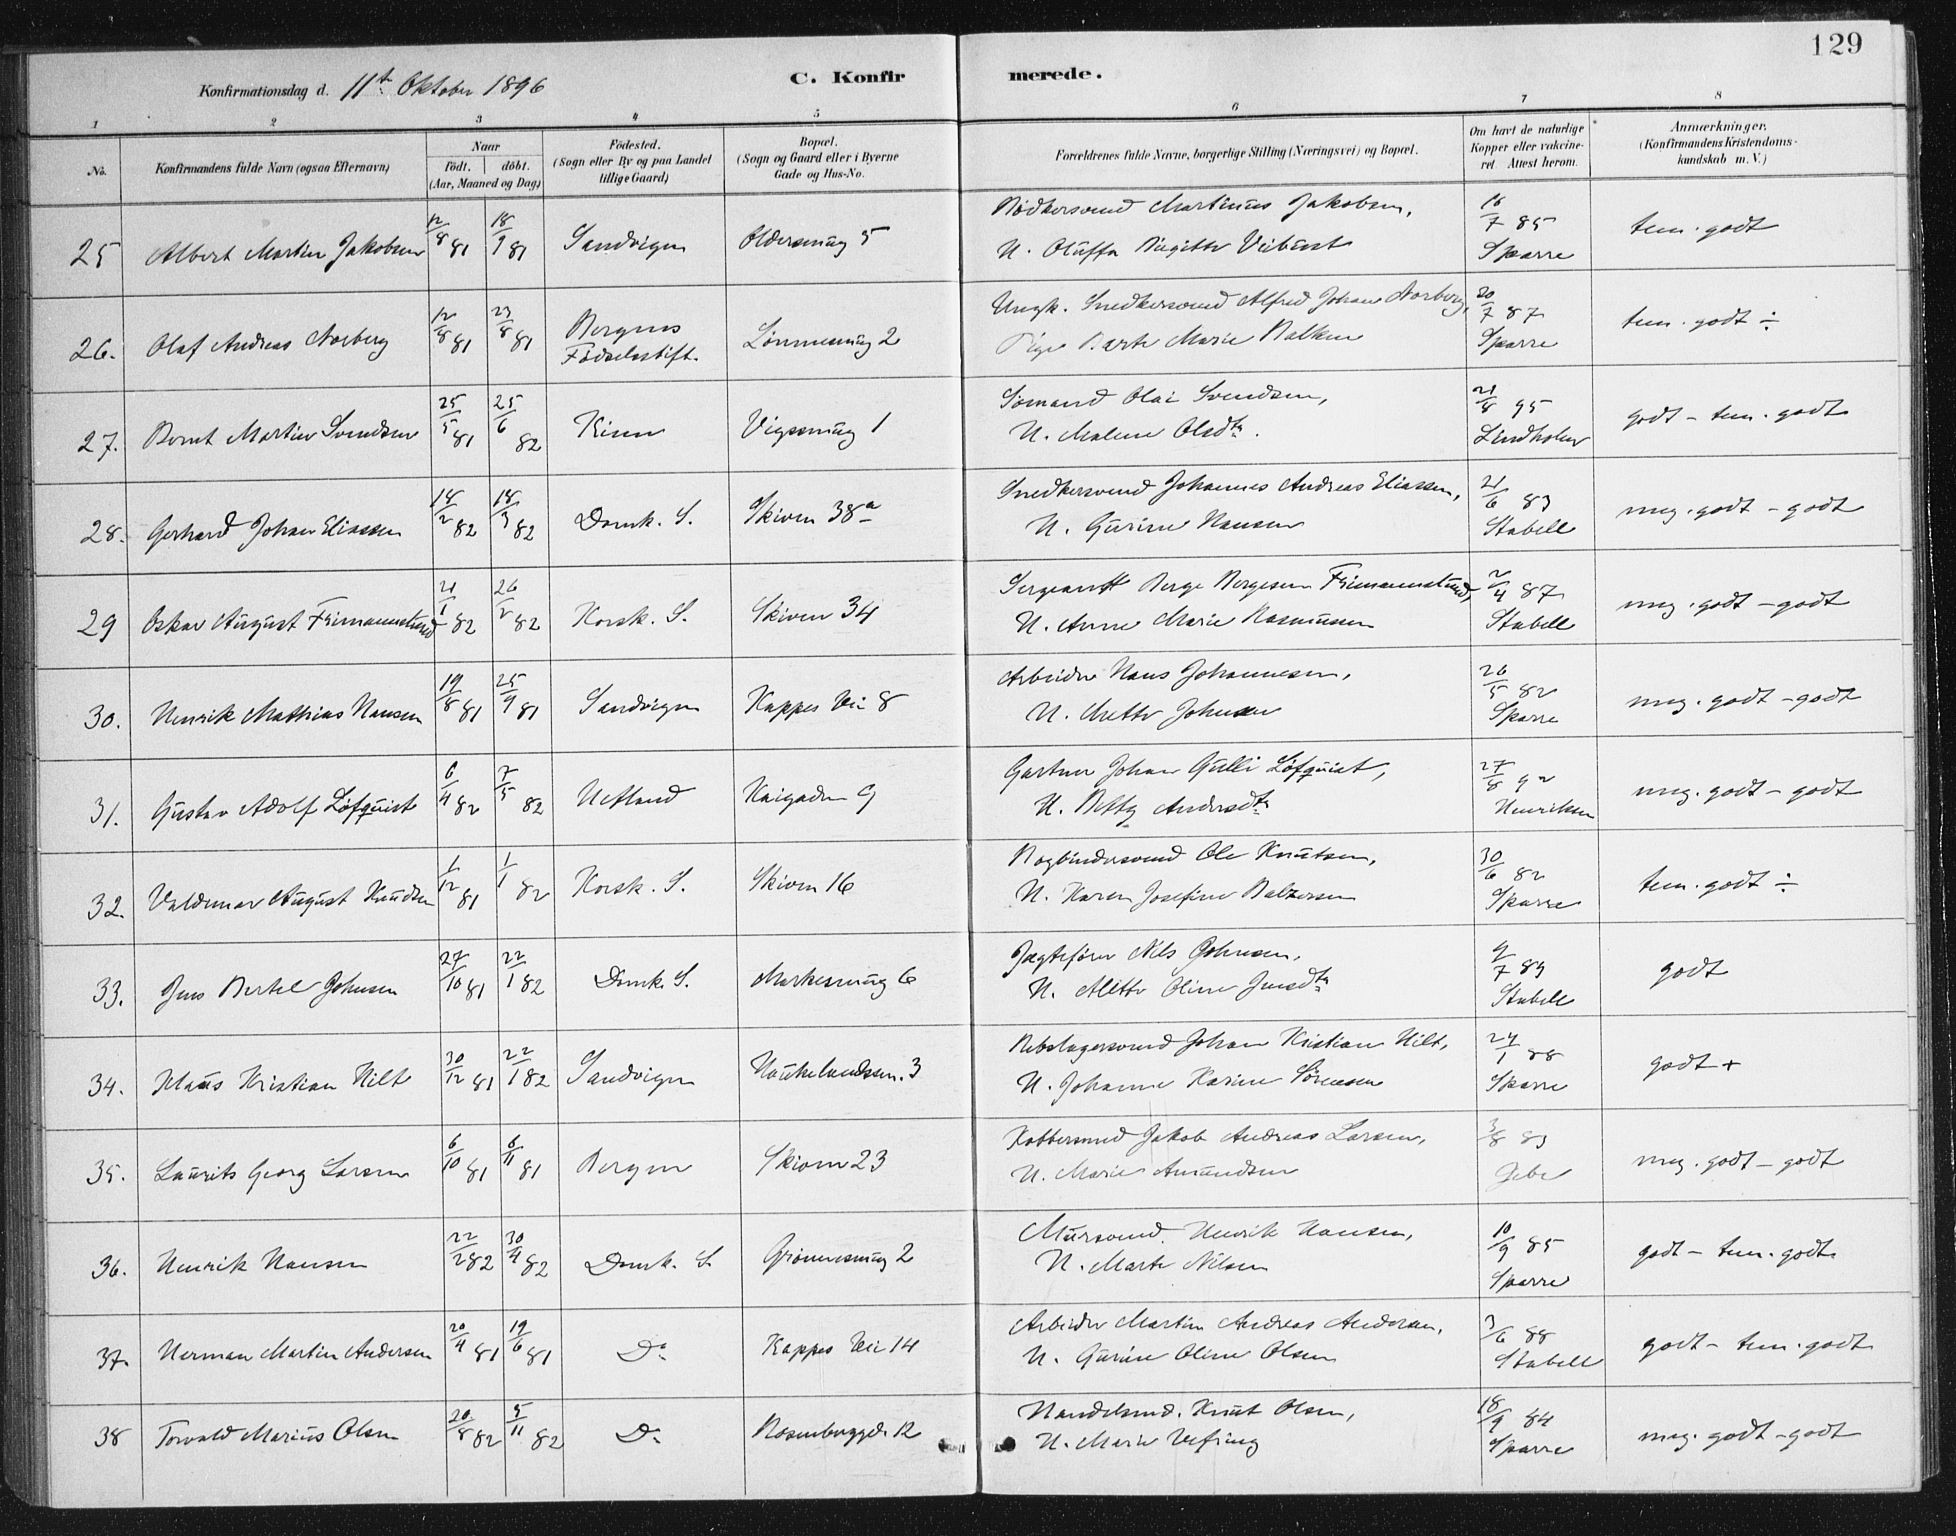 129
Konfirmationsdag d. 11te Oktober 1896
C. Konfirmerede.
1 2 3 4 5 6 7 8
No.
Konfirmandens fulde Navn (ogsaa Efternavn)
Naar
födt. döbt.
(Aar, Maaned og Dag)
Födested.
(Sogn eller By og paa Landet
tillige Gaard)
Bopæl.
(Sogn og Gaard eller i Byerne
Gade og Hus-No.
Forældrenes fulde Navne, borgerlige Stilling (Næringsvei) og Bopæl.
Om havt de naturlige
Kopper eller vakcine-
ret Attest herom.
Anmærkninger.
(Konfirmandens Kristendoms-
kundskab m. V.)
25 Albert Martin Jakobsen 12/8 81 18/9 81 Sandvigen Oldersmug 5
Bödkersvend Martinus Jakobsen,
H. Oluffa Birgitte
16/7 85 Sparre
tem. godt
26. Olaf Andreas Norberg 12/8 81 23/8 81 Bergens Födselsstift. 2
Ungk. Snedkersvend Alfred Johan Norberg,
Pige Marie Balken
20/7 87 Sparre
tem. godt ÷
27. Bernt Martin Svendsen 25/5 81 25/6 82 Kinn 1
Sömand Olai Svendsen,
H. Malene Olsdtr.
21/8 95 Lindholm
godt – tem. godt
28. Gerhard Johan Eliassen 18/2 82 18/3 82 Domk. S. Skiven 38a
Snedkersvend Johannes Andreas Eliassen,
H. Gurine Hansen
21/6 83 Stabell
meg. godt – godt
29 Oskar August Frimannslund 21/1 82 26/2 82 Korsk. S. Skiven 34
Sergeant Berge Borgesen Frimannslund,
H. Anne Marie Rasmussen
2/4 87 Stabell
meg. godt – godt
30. Henrik Mathias Hansen 19/8 81 25/9 81 Sandvigen Kappes Vei 8
Arbeider Hans Johannesen,
H. Mette Johnsen
26/5 82 Sparre
meg. godt – godt
31. Gustav Adolf Löfquist 6/4 82 7/5 82 Uefland Kaigaden 9
Gartner Johan Gulli Löfquist,
H. Betty Andersdtr
27/8 92 Henriksen
meg. godt – godt
32. Valdemar August Knudsen 1/12 81 1/1 82 Korsk. S. Skiven 16
Bogbindersvend Ole Knutsen,
H. Karen Josefine Baltzersen
30/6 82 Sparre
tem. godt ÷
33. Jens Bertel Johnsen 27/10 81 22/1 82 Domk. S. Markesmug 6
Jægtefører Nils Johnsen,
H. Oline Jensdtr
9/7 89 Stabell
godt
34. Klaus Kristian Hilt 30/12 81 22/1 82 Sandvigen Haukelandssm. 3
Rebslagersvend Johan Kristian Hilt,
H. Johanne Karine Sörensen
24/1 88 Sparre
godt +
35. Laurits Georg Larsen 6/10 81 6/11 81 Bergen Skiven 23
Kobbersmed Jakob Andreas Larsen,
H. Marie Amundsen
3/8 83
meg. godt – godt
36. Henrik Hansen 22/2 82 30/4 82 Domk. S. Grönnesmug 2
Mursvend. Henrik Hansen,
H. Marte Nilsen
10/9 85 Sparre
godt – tem. godt
37. Herman Martin Andersen 20/4 81 19/6 81 Do Kappes Vei 14
Arbeider Martin Andreas Andersen,
H. Gurine Oline Olsen
3/6 88 Stabell
godt – tem. godt
38 Torvald Marius Olsen 20/8 82 5/11 82 Do Rosenberggd. 12
Handelsmd. Knut Olsen,
H. Marie Vefring
18/9 84 Sparre
meg. godt – godt